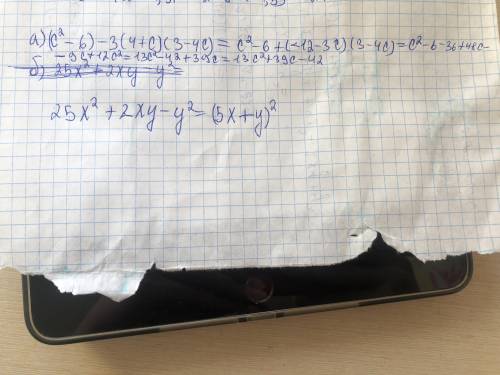 а) (c² - 6) - 3(4+c)(3-4c) = c² - 6 + (-12-3c)(3-4c) = c² - 6 - 36 + 48c -
- 9c + 12c² = 13c² - 42 + 39c = 13c² + 39c - 42
б) 25x² + 2xy - y² =
25x² + 2xy - y² = (5x+y)²